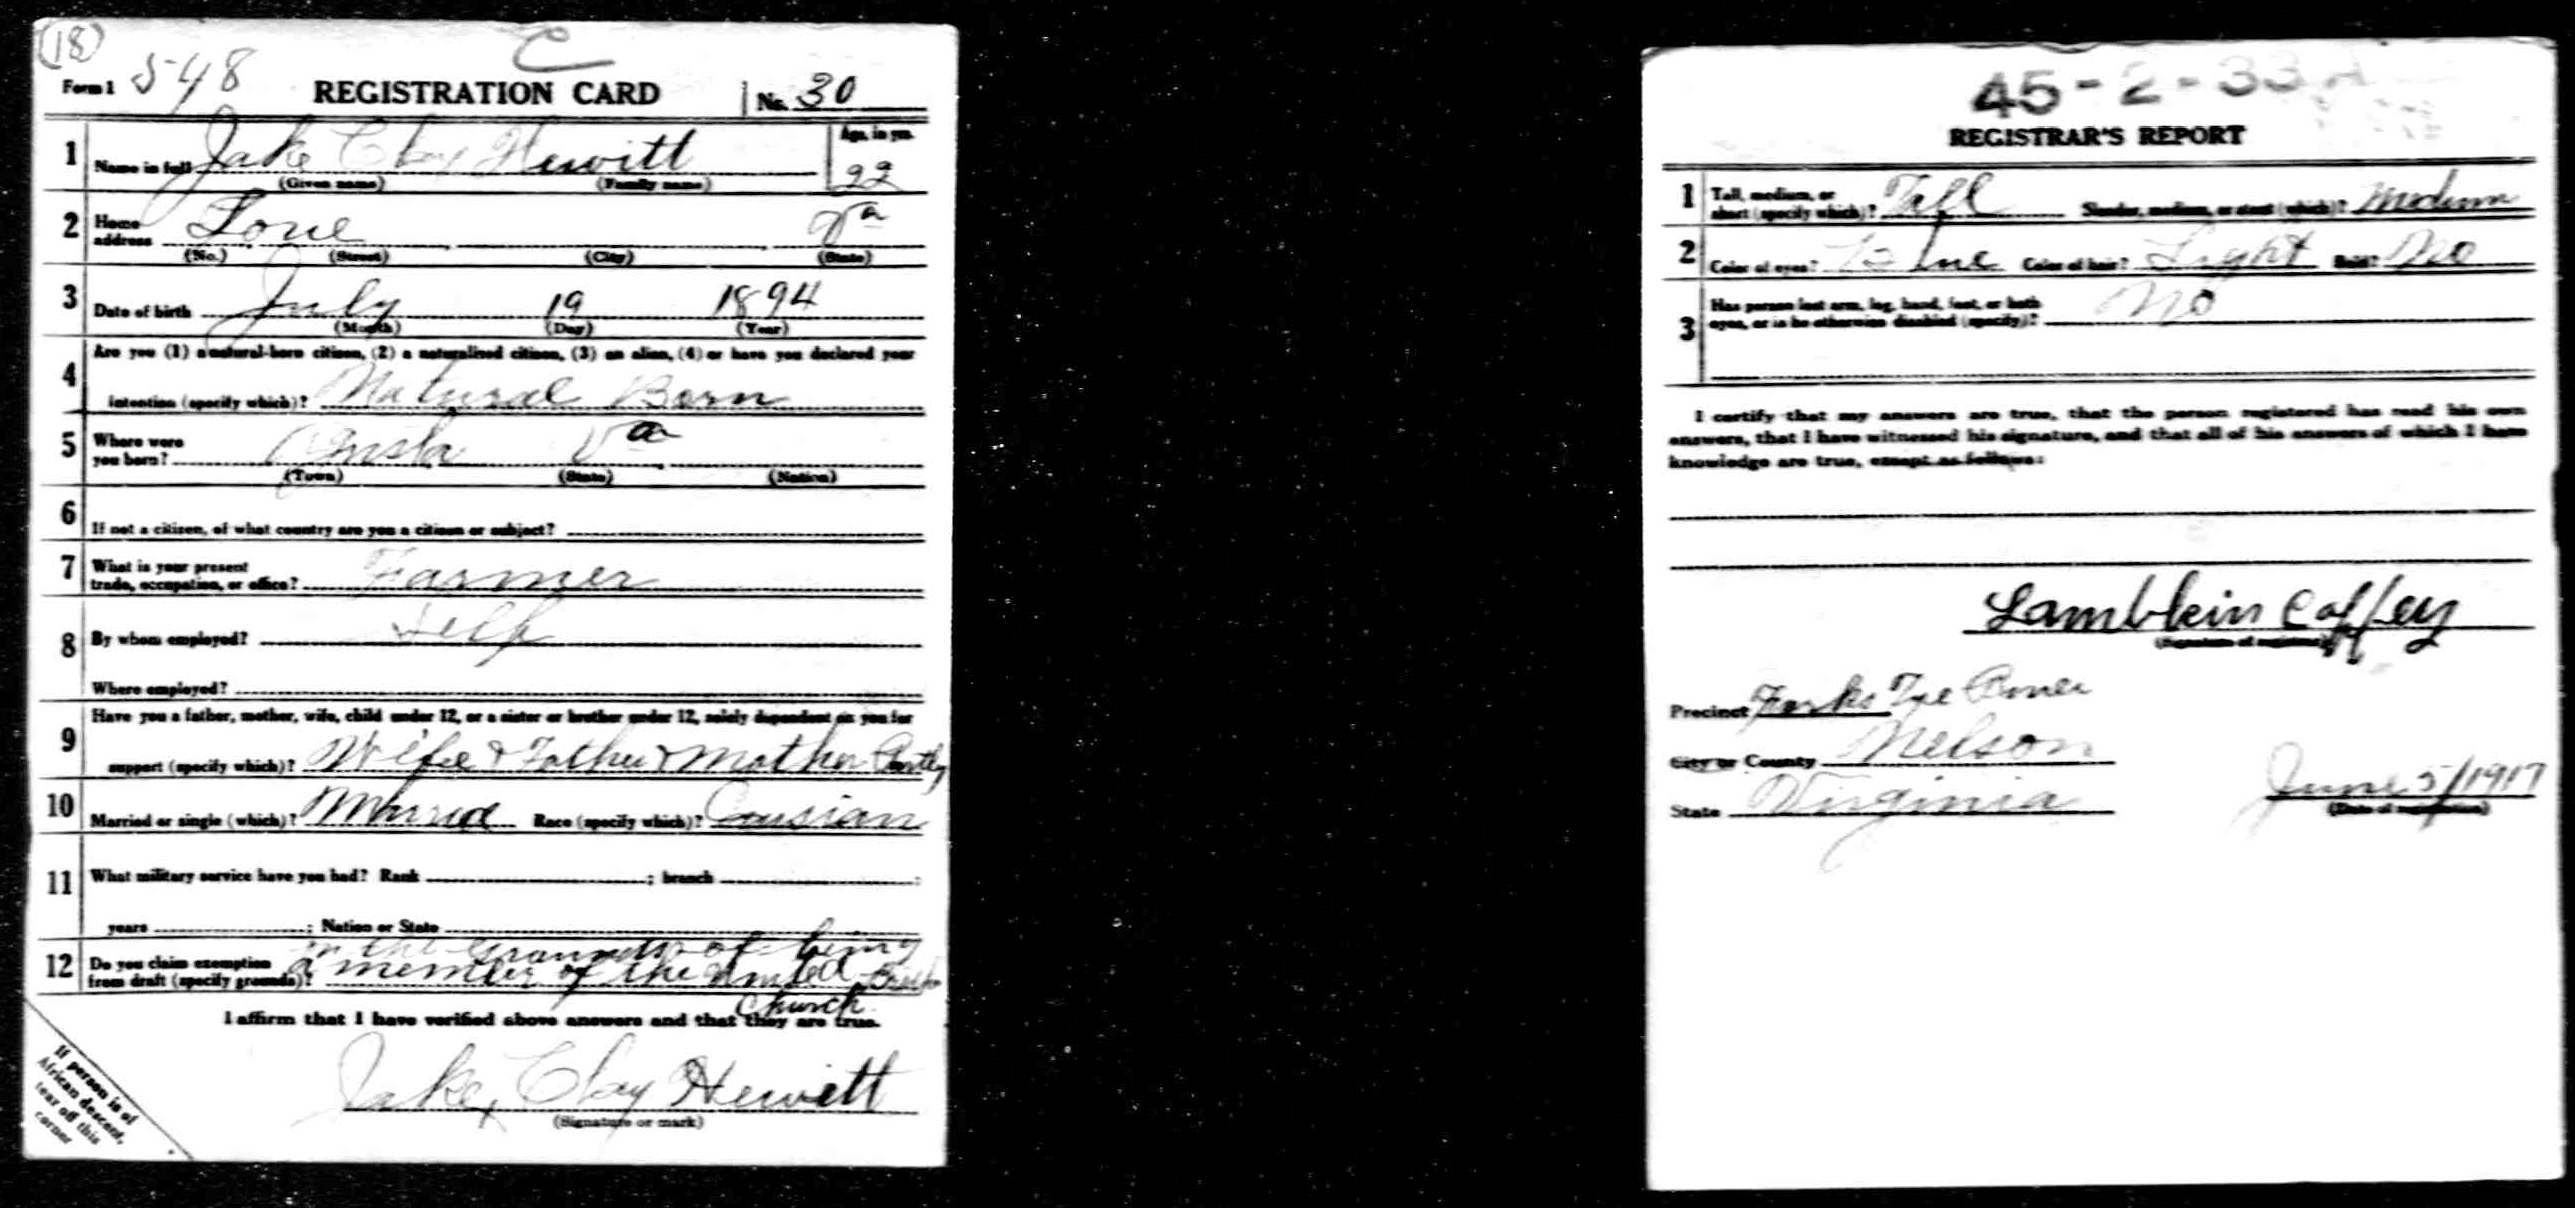 (18)
C
Form 1 548 REGISTRATION CARD No. 30
1 Name in full Jake Clay Hewitt Age, in yrs. 22
(Given name) (Family name)
2 Home address Love Va
(No.) (Street) (City) (State)
3 Date of birth July 19 1894
(Month) (Day) (Year)
4 Are you (1) a natural-born citizen, (2) a naturalized citizen, (3) an alien, (4) or have you declared your
intention (specify which)? Natural Born
5 Where were you born? Va
(Town) (State) (Nation)
6 If not a citizen, of what country are you a citizen or subject?
7 What is your present trade, occupation, or office? Farmer
8 By whom employed? Self
Where employed?
9 Have you a father, mother, wife, child under 12, or a sister or brother under 12, solely dependent on you for
support (specify which)? Wife & Father & Mother Partly
10 Married or single (which)? Married Race (specify which)? Causian
11 What military service have you had? Rank ; branch ;
years ; Nation or State
on the Grounds of being
12 Do you claim exemption from draft (specify grounds)? a member of the United Breth
Church
I affirm that I have verified above answers and that they are true.
Jake Clay Hewitt
(Signature or mark)
If person is of
African descent,
tear off this
corner
45-2-33 A
REGISTRAR'S REPORT
1 Tall, medium, or short (specify which)? Tall Slender, medium, or stout (which)? Medium
2 Color of eyes? Blue Color of hair? Light Bald? No
3 Has person lost arm, leg, hand, foot, or both eyes, or is he otherwise disabled (specify)? No
I certify that my answers are true, that the person registered has read his own
answers, that I have witnessed his signature, and that all of his answers of which I have
knowledge are true, except as follows:
Coffey
(Signature of registrar)
Precinct Forks Tye River
City or County Nelson
State Virginia June 5/1917
(Date of registration)